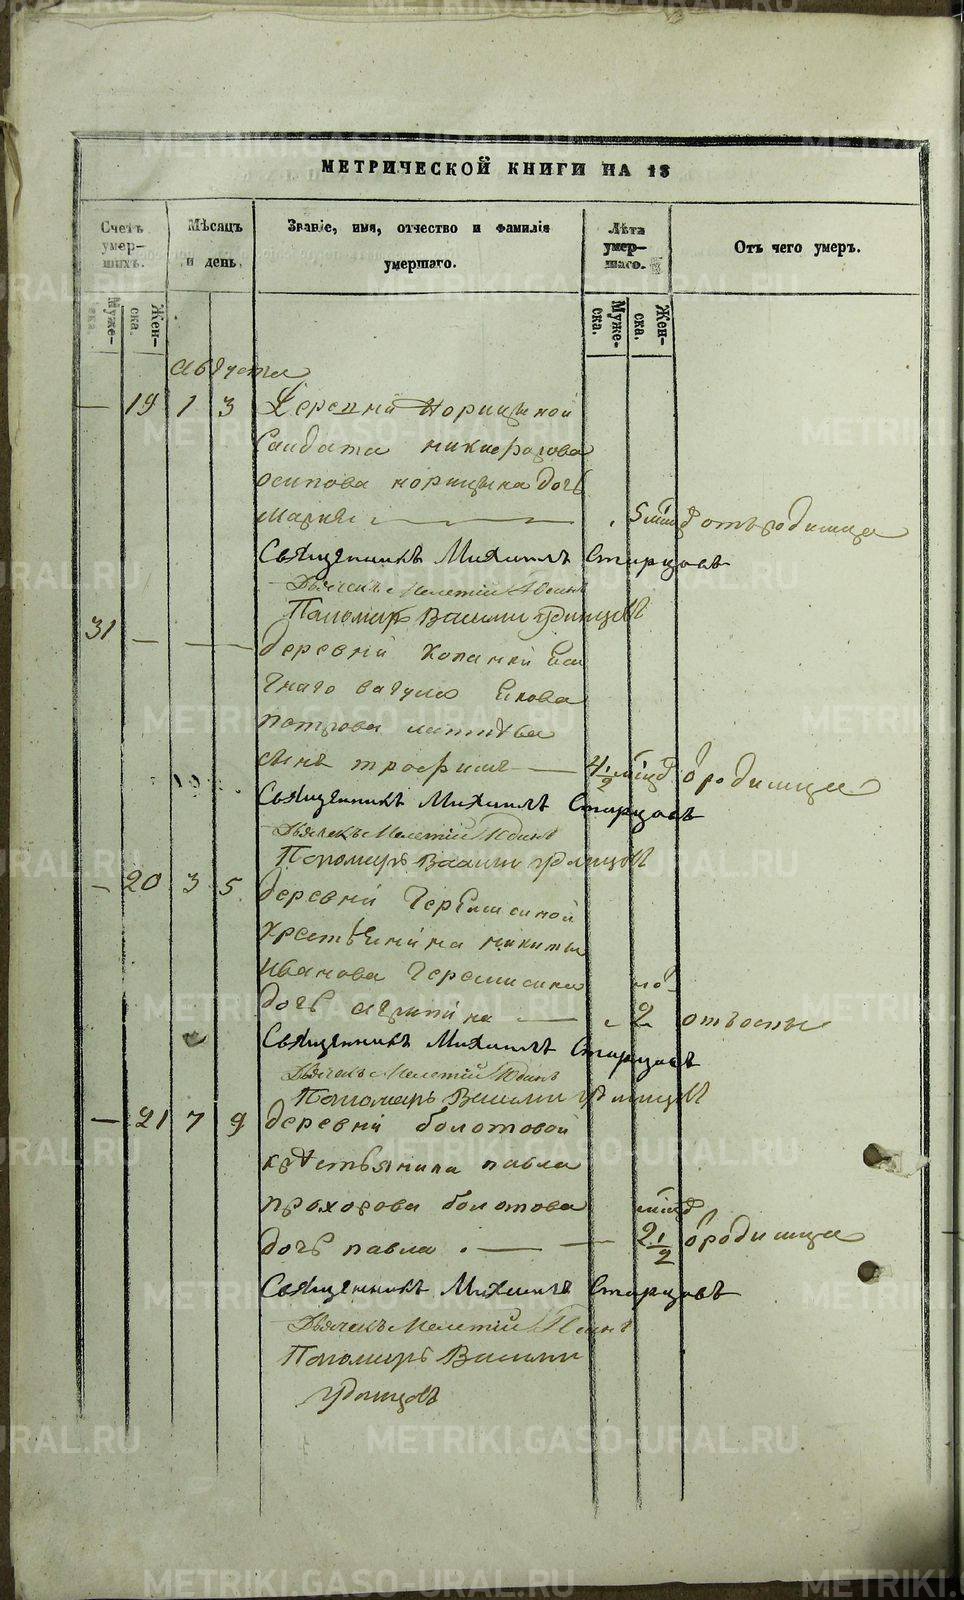 МЕТРИЧЕСКОЙ КНИГИ НА 18
Счетъ умер-шихъ.
Мѣсяцъ и день.
Званіе, имя, отчество и фамилія умершаго.
Лѣта умер-шаго.
Отъ чего умеръ.
Муже-ска.
Жен-ска.
Муже-ска.
Жен-ска.
августа
— 19 1 3 Деревни Норицыной
Салдата никифорова
осипова норицына дочь
мария 5 мѣц отъ родимца
Священникъ Михаилъ Старцовъ
Дьячекъ Мелетій Юдинъ
Пономарь Василий Удинцовъ
31 — — — деревни Копанки
вагула Екова
петрова
сынъ трофимъ — 4 1/2 мѣц родимца
Священникъ Михаилъ Старцовъ
Дьячекъ Мелетій Юдинъ
Пономарь Василий Удинцовъ
— 20 3 5 деревни Черемисиной
никиты
иванова Черемисина
дочь — 2 отъ оспы
Священникъ Михаилъ Старцовъ
Дьячекъ Мелетій Юдинъ
Пономарь Василий Удинцовъ
— 21 7 9 деревни болотовой
крестьянина павла
прохорова болотова мѣц
дочь павла — — 2 1/2 родимца
Священникъ Михаилъ Старцовъ
Дьячекъ Мелетій Юдинъ
Пономарь Василий
Удинцовъ
METRIKI.GASO-URAL.RU